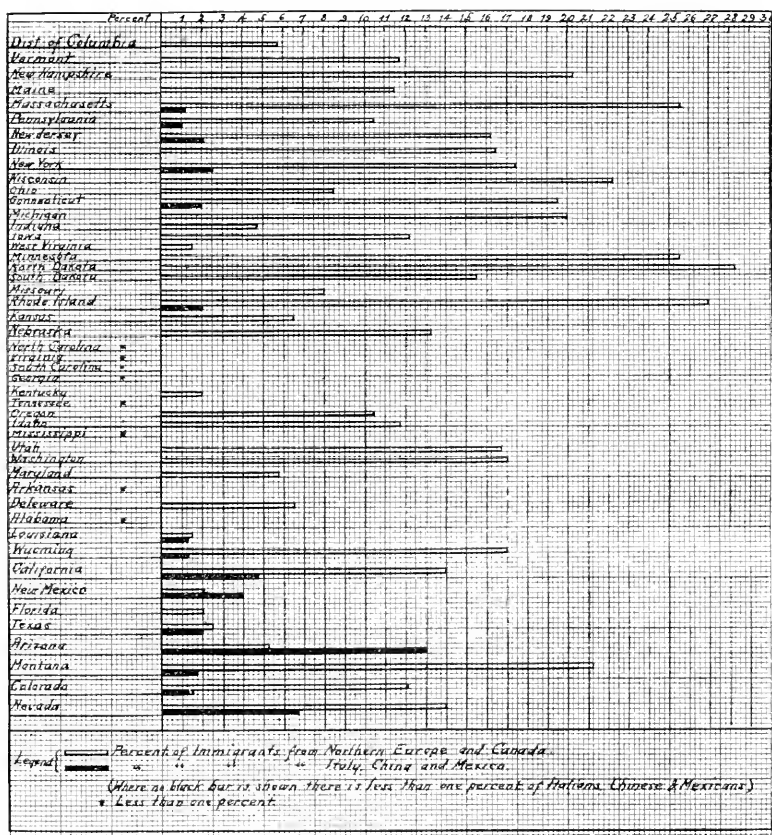 Percent 1 2 3 4 5 6 7 8 9 10 11 12 13 14 15 16 17 18 19 20 21 22 23 24 25 26 27 28 29 30
Dist of Columbia
Vermont
New Hampshire
Maine
Massachusetts
Pennsylvania
New Jersey
Illinois
New York
Wisconsin
Ohio
Connecticut
Michigan
Indiana
Iowa
West Virginia
Minnesota
North Dakota
South Dakota
Missoury
Rhode Island
Kansas
Nebraska
North Carolina *
Virginia *
South Carolina *
Georgia *
Kentucky
Tennessee *
Oregon
Idaho
Mississippi *
Utah
Washington
Maryland
Arkansas *
Deleware
Alabama *
Louisiana
Wyoming
California
New Mexico
Florida
Texas
Arizona
Montana
Colorado
Nevada
Legend { Percent of Immigrants from Northern Europe and Canada.
" " " " Italy, China and Mexico.
(Where no black bar is shown there is less than one percent of Italians, Chinese & Mexicans)
* Less than one percent